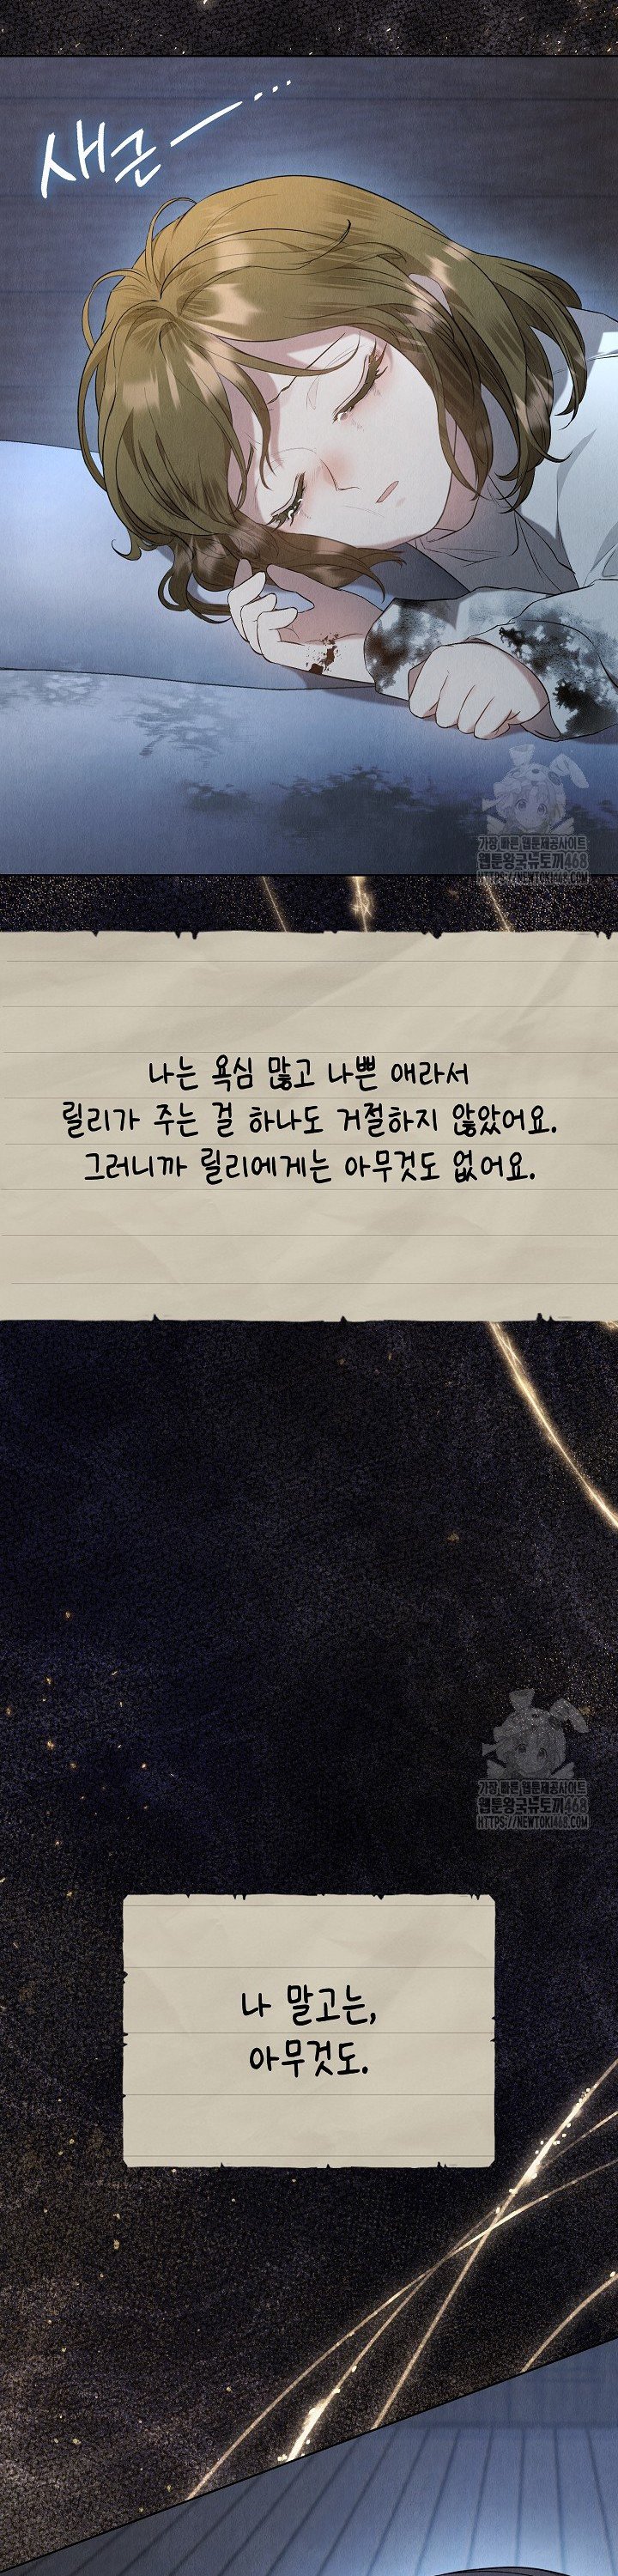 새근—...
가장 빠른 웹툰제공사이트
웹툰왕국뉴토끼468
HTTPS://NEWTOKI468.COM
나는 욕심 많고 나쁜 애라서
릴리가 주는 걸 하나도 거절하지 않았어요.
그러니까 릴리에게는 아무것도 없어요.
가장 빠른 웹툰제공사이트
웹툰왕국뉴토끼468
HTTPS://NEWTOKI468.COM
나 말고는,
아무것도.